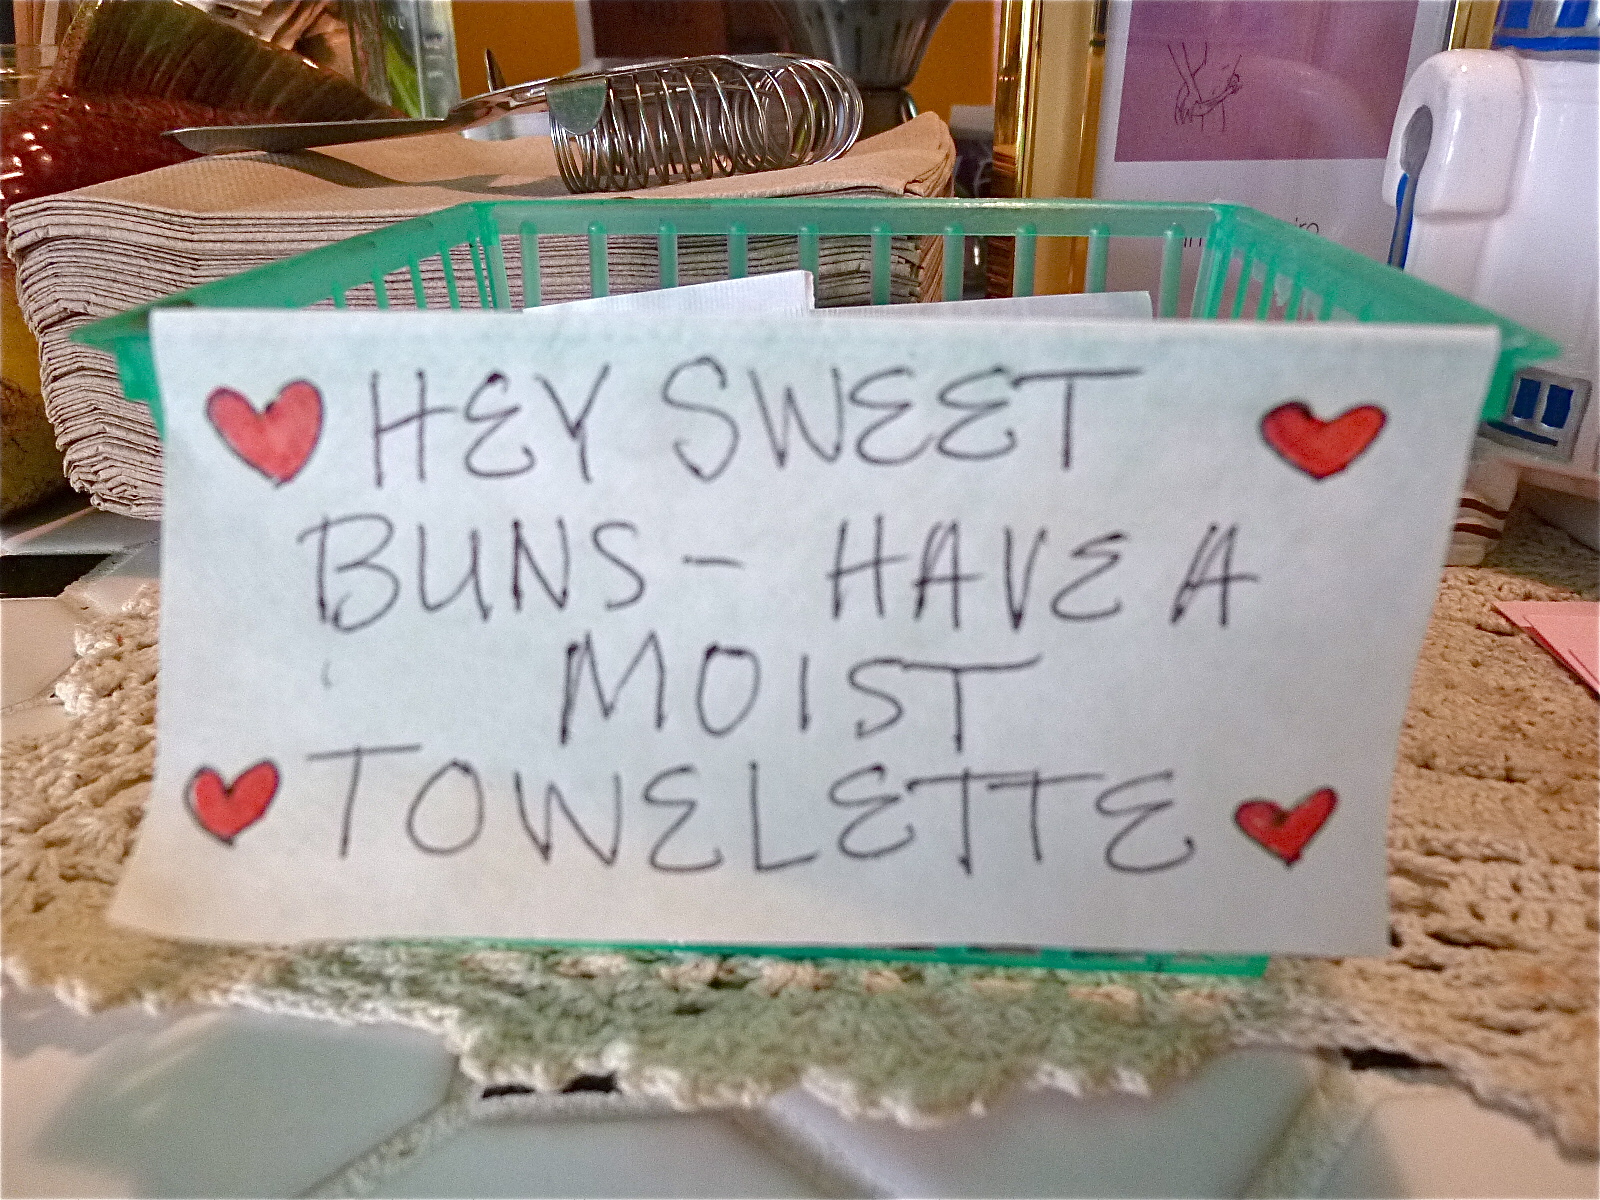 HEY SWEET
BUNS - HAVE A
MOIST
TOWELETTE